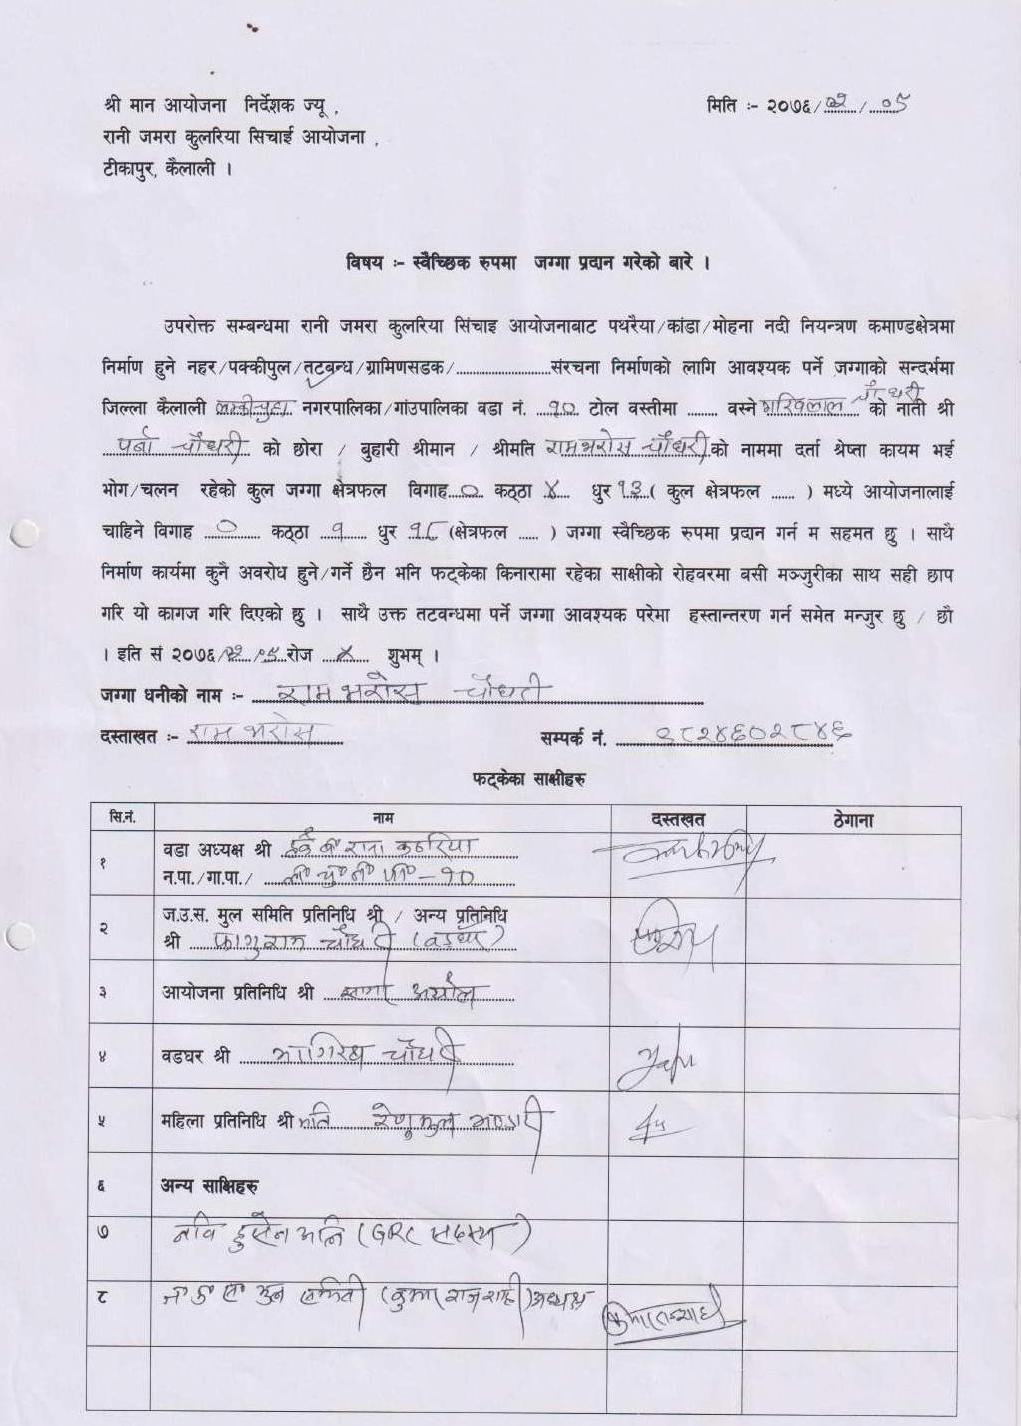 श्री मान आयोजना निर्देशक ज्यू , मिति :- २०७६/०२/०५
रानी जमरा कुलरिया सिचाई आयोजना ,
टीकापुर, कैलाली ।
विषय :- स्वैच्छिक रुपमा जग्गा प्रदान गरेको बारे ।
उपरोक्त सम्बन्धमा रानी जमरा कुलरिया सिंचाइ आयोजनाबाट पथरैया/कांडा/मोहना नदी नियन्त्रण कमाण्डक्षेत्रमा
निर्माण हुने नहर/पक्कीपुल/तटबन्ध/ग्रामिणसडक/........................संरचना निर्माणको लागि आवश्यक पर्ने जग्गाको सन्दर्भमा
जिल्ला कैलाली लम्कीचुहा नगरपालिका/गांउपालिका वडा नं. १० टोल वस्तीमा ........ वस्ने चौधरी को नाती श्री
चौधरी को छोरा / बुहारी श्रीमान / श्रीमति रामभरोस चौधरी को नाममा दर्ता श्रेष्ता कायम भई
भोग/चलन रहेको कुल जग्गा क्षेत्रफल विगाह ० कठ्ठा ४ धुर १३ ( कुल क्षेत्रफल ...... ) मध्ये आयोजनालाई
चाहिने विगाह ० कठ्ठा १ धुर १८ (क्षेत्रफल ..... ) जग्गा स्वैच्छिक रुपमा प्रदान गर्न म सहमत छु । साथै
निर्माण कार्यमा कुनै अवरोध हुने/गर्ने छैन भनि फट्केका किनारामा रहेका साक्षीको रोहवरमा वसी मञ्जुरीका साथ सही छाप
गरि यो कागज गरि दिएको छु । साथै उक्त तटवन्धमा पर्ने जग्गा आवश्यक परेमा हस्तान्तरण गर्न समेत मन्जुर छु / छौ
। इति सं २०७६/०२/०५ रोज शुभम् ।
जग्गा धनीको नाम :- रामभरोस चौधरी
दस्ताखत :- रामभरोस सम्पर्क नं. ९८२४६०२८४६
फट्केका साक्षीहरु
सि.नं. नाम दस्तखत ठेगाना
१ वडा अध्यक्ष श्री कठरिया
न.पा./गा.पा./ ल० चु० न० पा० -१०
२ ज.उ.स. मुल समिति प्रतिनिधि श्री / अन्य प्रतिनिधि
श्री फागुराम चौधरी
३ आयोजना प्रतिनिधि श्री
४ वडघर श्री भागिराम चौधरी
५ महिला प्रतिनिधि श्रीमति
६ अन्य साक्षिहरु
७ नवि हुसेन अलि (GRC सदस्य)
८ मुल समिती (कुमार राज शाही) अध्यक्ष